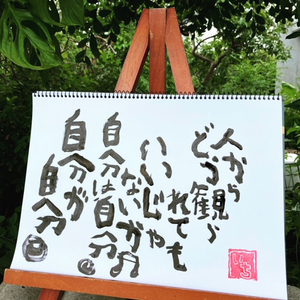 人から
どう観ら
れても
いいじゃ
ないかぁ
自分は自分
自分が
自分